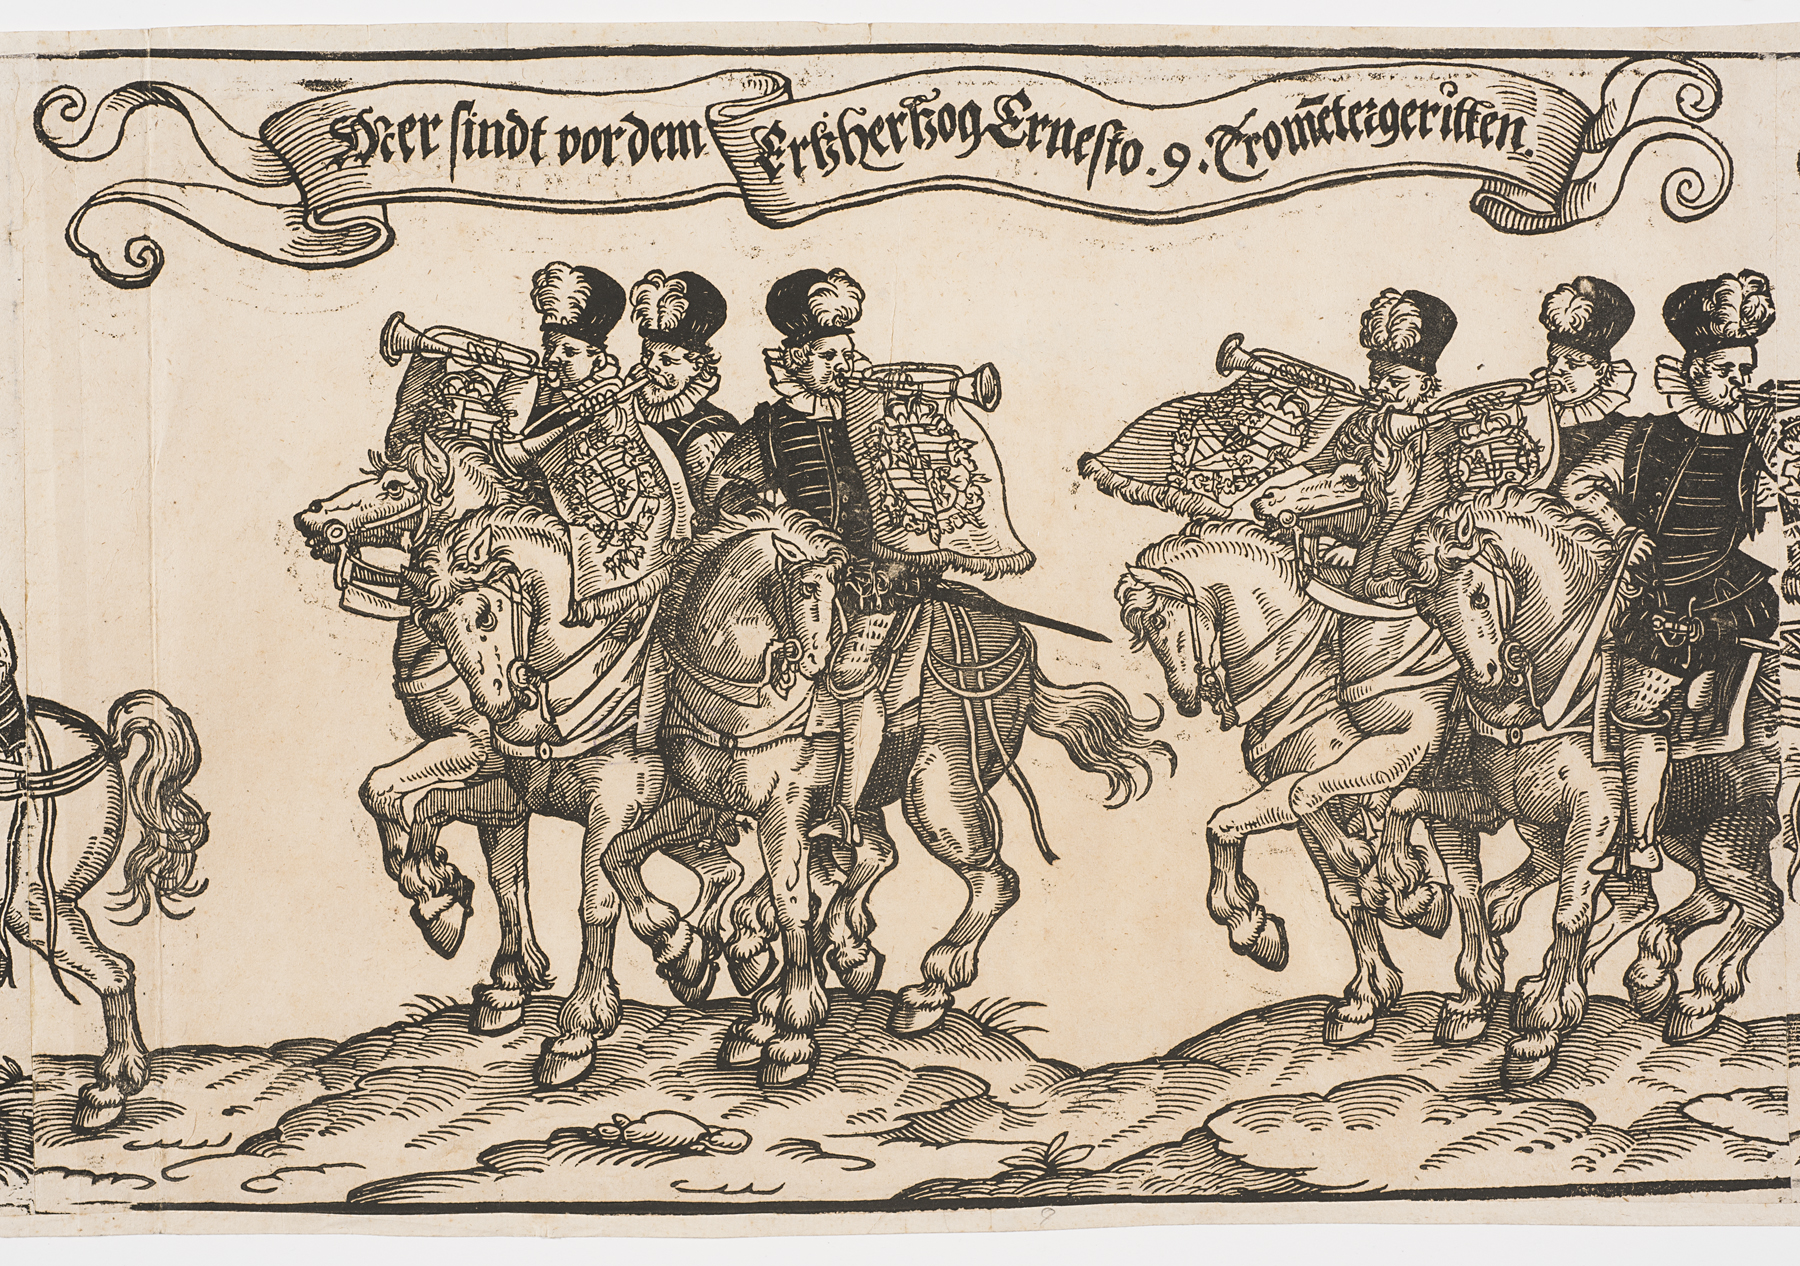 Hier sindt vor dem Ertzhertzog Ernesto . 9 . Trom̄eter geritten.